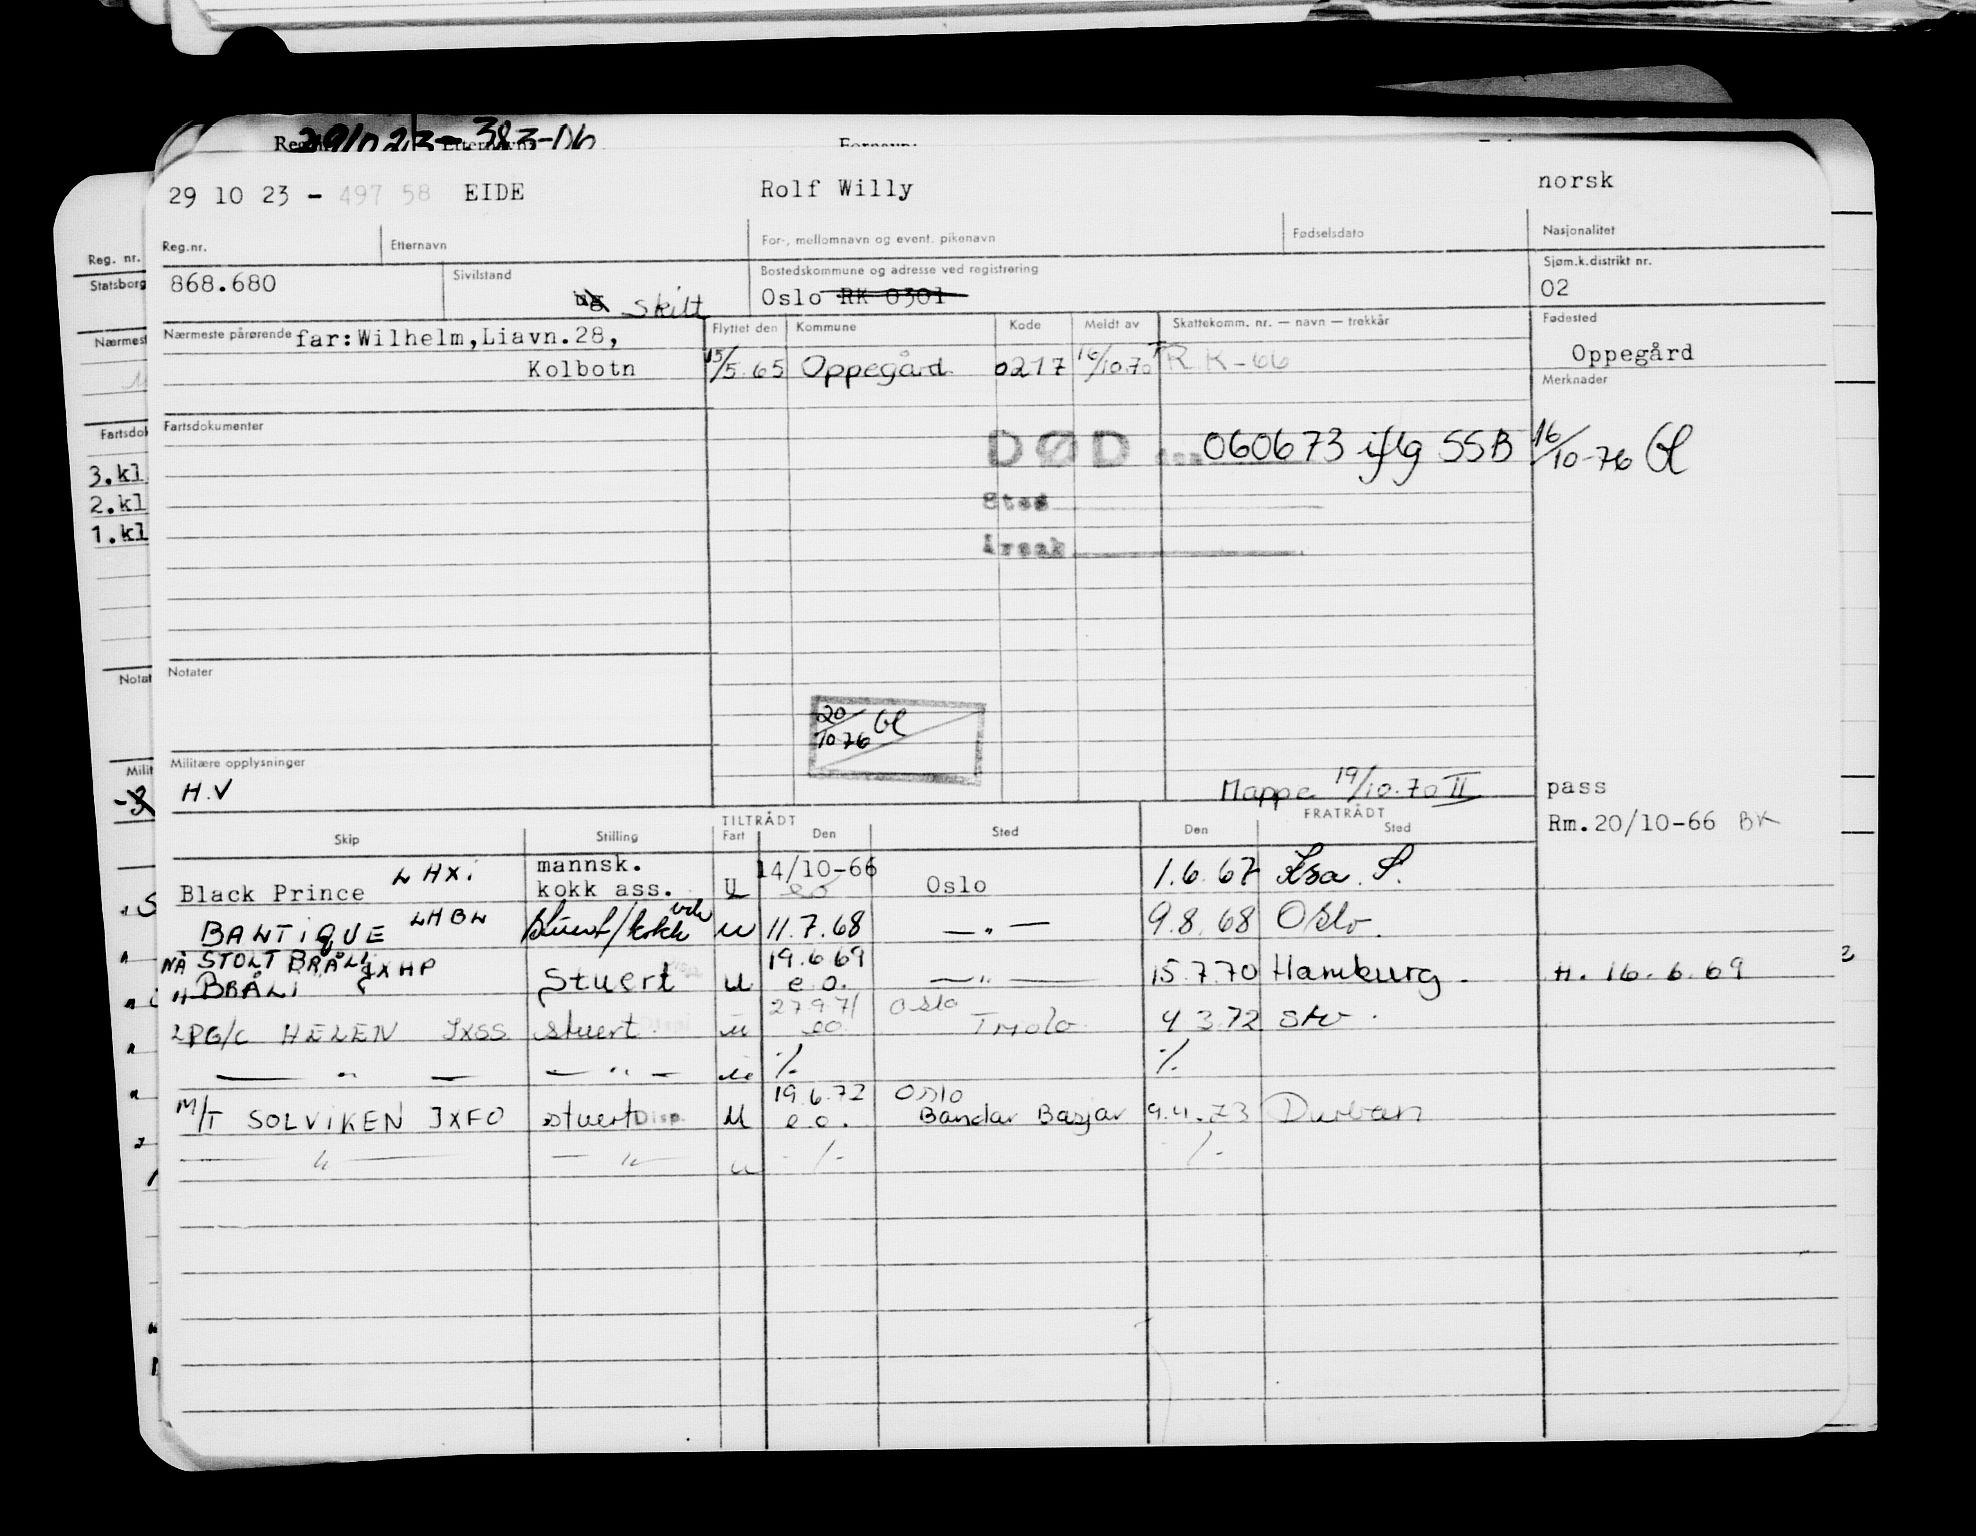 29 10 23 - 497 58 EIDE Rolf Willy norsk
Reg.nr. Etternavn For-, mellomnavn og event. pikenavn Fødselsdato Nasjonalitet
868.680 Sivilstand skilt Bostedskommune og adresse ved registrering Sjøm.k.distrikt nr.
Oslo RK 0301 02
Nærmeste pårørende far:Wilhelm,Liavn.28, Flyttet den Kommune Kode Meldt av Skattekomm. nr. — navn — trekkår Fødested
Kolbotn 15/5.65 Oppegård 0217 16/10.70 RK-66 Oppegård
Merknader
Fartsdokumenter
DØD 060673 iflg SSB 16/10-76
Sted
Årsak
Notater
20/10 76
Militære opplysninger
H.V
Mappe 19/10.70 II pass
Rm.20/10-66 BK
Skip Stilling TILTRÅDT Fart Den Sted FRATRÅDT Den Sted
Black Prince LHXI mannsk. kokk ass. U 14/10-66 eo Oslo 1.6.67 Kra. S.
BANTIQUE LHBN stuert/kokk u 11.7.68 — " — 9.8.68 Oslo.
NÅ STOLT BRÅLI
BRÅLI JXHP Stuert U 19.6.69 e.o. — " — 15.7.70 Hamburg. H. 16.6.69
LPG/C HELEN JXSS stuert. u 27.9.71 eo Oslo 4 3.72
— " — — " — u ./. ./.
M/T SOLVIKEN JXFO stuert Disp. U 19.6.72 e.o. Oslo Bandar Basjar 9.4.73 Durban
— " — — " — u ./. ./.
Reg. nr.
Statsborg
Nærmest
Fartsdok
3.kl
2.kl
1.kl
Notat
Milit